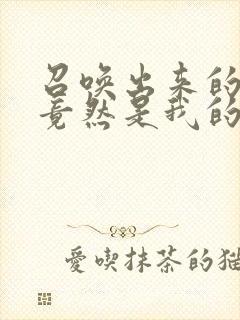 召唤出来的
竟然是我的
愛喫抹茶的猫